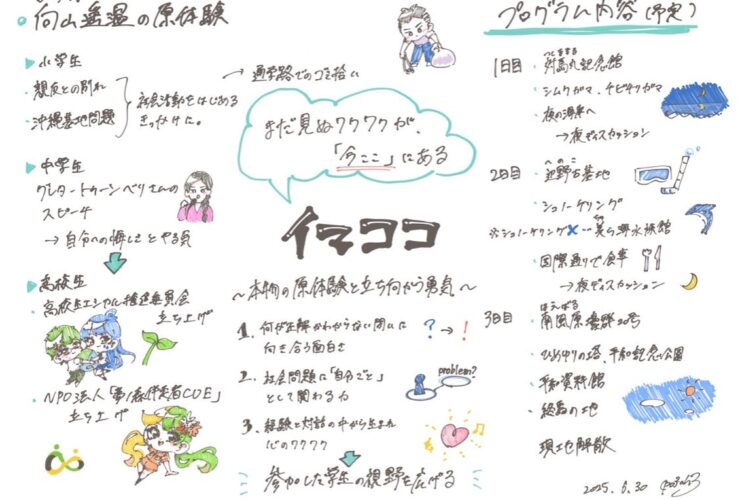 向山遥温の原体験
▶小学生
・親友との別れ
・沖縄基地問題
社会活動をはじめる
きっかけに。
→ 通学路でのゴミ拾い
▶中学生
グレタ・トゥーンベリさんの
スピーチ
→ 自分への悔しさとやる気
▶高校生
・高校生エシカル推進委員会
立ち上げ
・NPO法人
立ち上げ
まだ見ぬワクワクが、
「今ここ」にある
イマココ
〜本物の原体験と立ち向かう勇気〜
1. 何が正解かわからない問いに
向き合う面白さ
? → !
2. 社会問題に「自分ごと」
として関わる力
problem?
3. 経験と対話の中から生まれる
心のワクワク
参加した学生の視野を広げる
プログラム内容(予定)
1日目
・対馬丸記念館
・シムクガマ、チビチリガマ
・夜の海岸へ
→夜ディスカッション
2日目
へのこ
・辺野古基地
・シュノーケリング
※シュノーケリング✕…美ら海水族館
・国際通りで食事
→夜ディスカッション
3日目
はえばる
・南風原壕群20号
・ひめゆりの塔、平和祈念公園
・平和資料館
・終焉の地
現地解散
2025.6.30